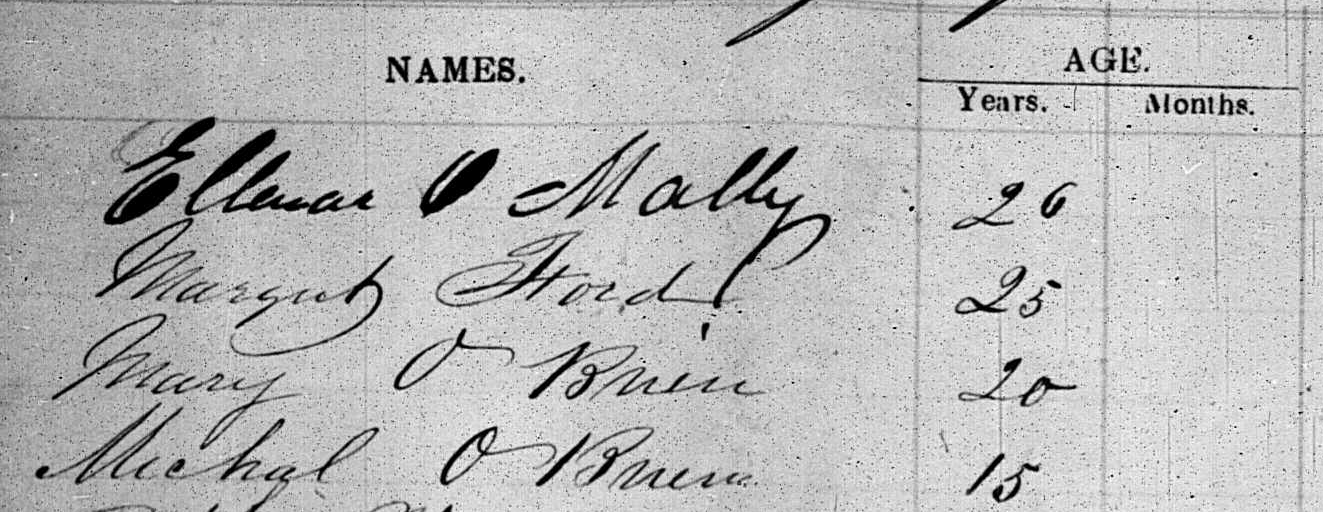 NAMES. AGE.
Years. Months.
Ellenar O Mally 26
Margret Ford 25
Mary O Brien 20
Michal O Brien 15